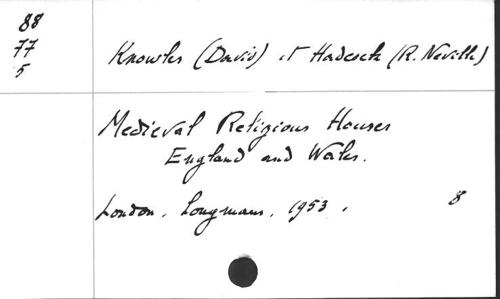 88
77
5
Knowles (David) et Hadcock (R. Neville)
Medieval Religious Houses
England and Wales.
London, Longmans, 1953.
8